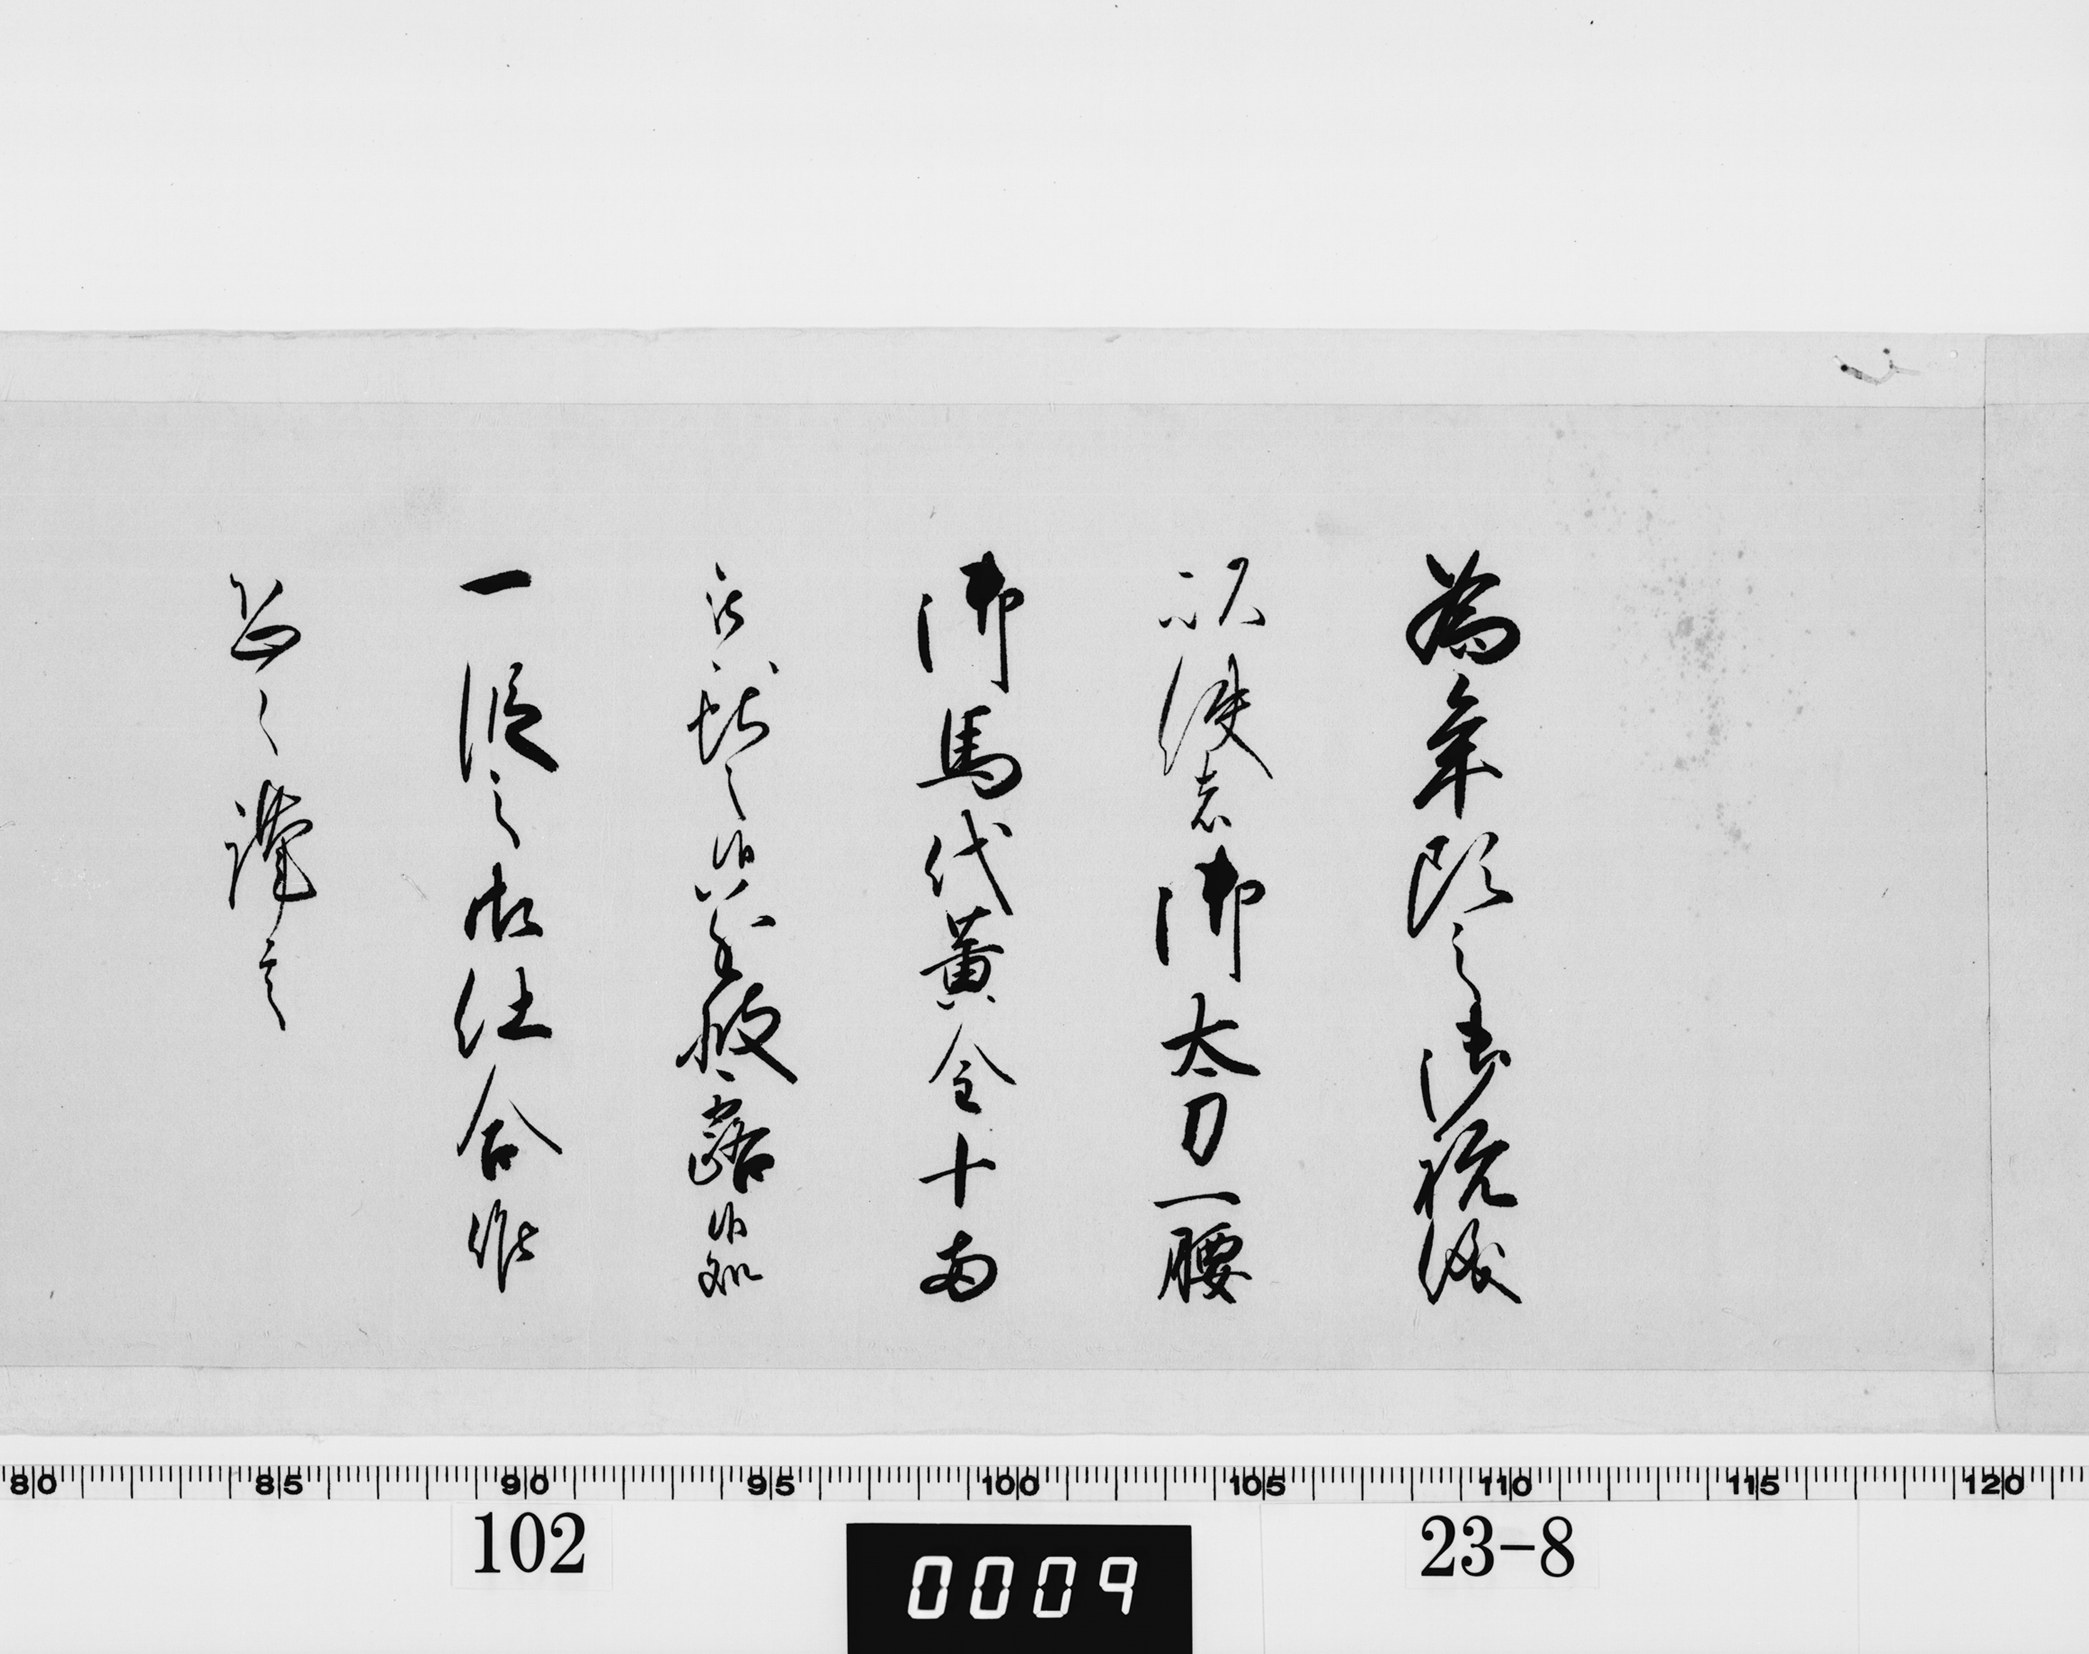 為年頭之御祝儀
以使者御太刀一腰
御馬代黄金十両
被献之候披露候処
一段之御仕合
恐々謹言
80 85 90 95 100 105 110 115 120
102 0009 23-8